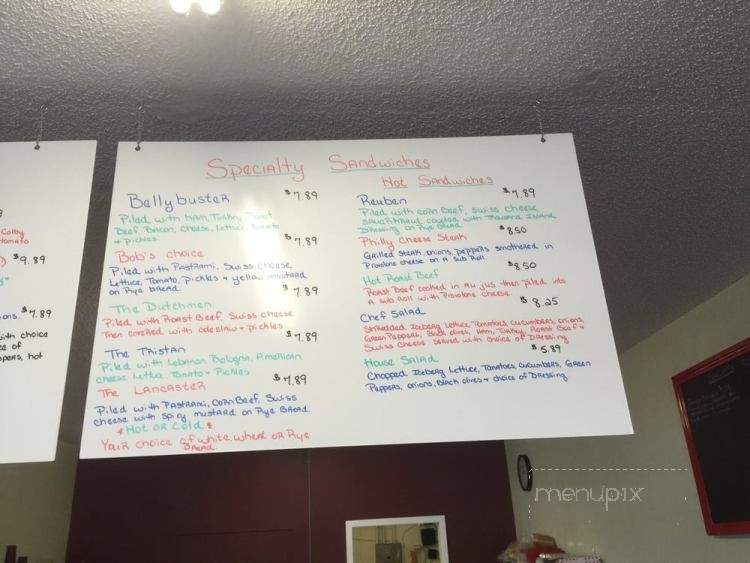 Specialty Sandwiches
Bellybuster $7.89
Piled with Ham, Turkey, Roast
Beef, Bacon, Cheese, Lettuce, Tomato
+ pickles.
Bob's choice $7.89
Piled with Pastrami, Swiss cheese,
Lettuce, Tomato, pickles + yellow mustard
on Rye Bread.
The Dutchmen $7.89
Piled with Roast Beef, Swiss cheese
Then covered with coleslaw + pickles.
The Tristan $7.89
Piled with Lebanon Bologna, American
cheese, Lettuce Tomato + Pickles
The Lancaster $7.89
Piled with Pastrami, Corn Beef, Swiss
cheese with spicy mustard on Rye Bread
*Hot or Cold*
Your choice of white, wheat or Rye
Bread
Hot Sandwiches
Reuben $7.89
Piled with corn Beef, swiss cheese
sauerkraut covered with Thousand Island
Dressing on Rye Bread
Philly Cheese Steak $8.50
Grilled steak, onions, peppers smothered in
Provolone cheese on a Sub Roll.
Hot Roast Beef $8.50
Roast Beef cooked in au jus then piled into
a sub Roll with Provolone cheese.
Chef Salad $8.25
Shredded Iceberg Lettuce, Tomatoes, cucumbers, onions,
Green Peppers, Black olives, Ham, Turkey, Roast Beef +
Swiss Cheese served with choice of Dressing
House Salad $5.89
Chopped Iceberg Lettuce, Tomatoes, cucumbers, Green
Peppers, onions, Black olives + choice of Dressing
9
Colby
tomato
$9.89
ions. $7.89
with choice
ce of
hot
menupix